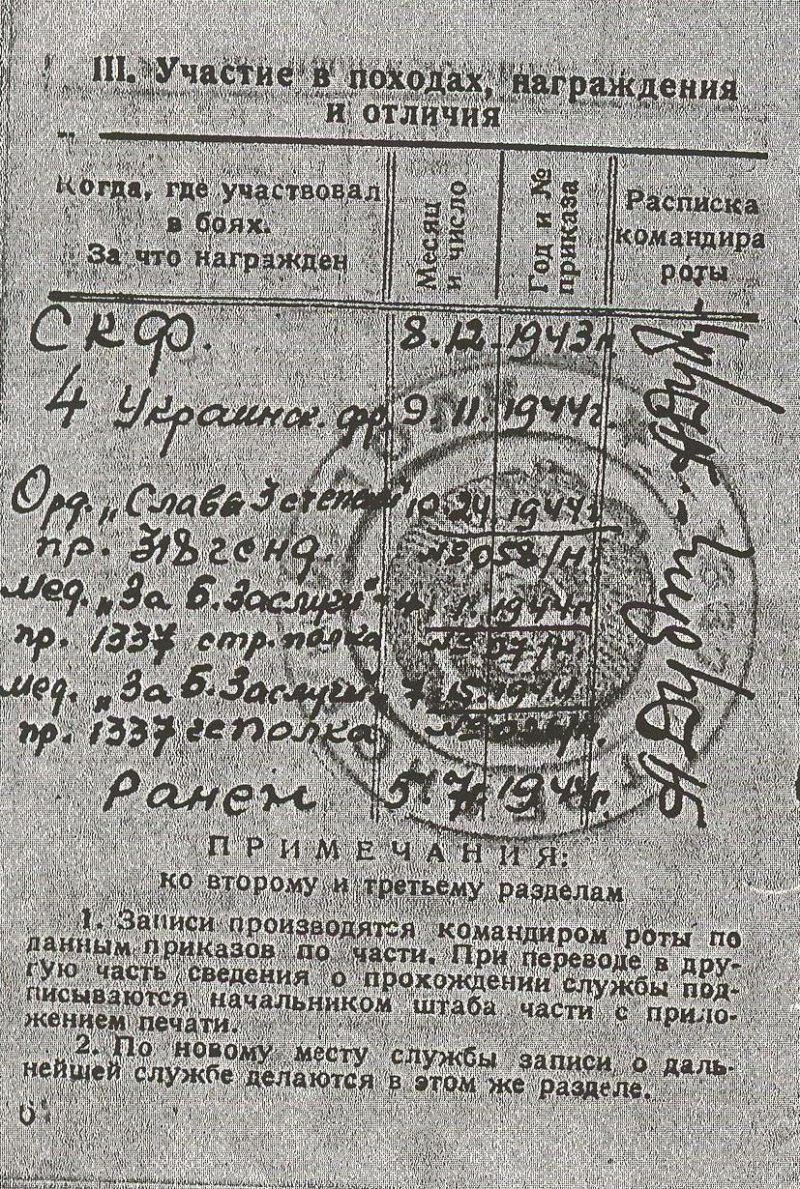 III. Участие в походах, награждения
и отличия
Когда, где участвовал
в боях.
За что награжден
Месяц
и число
Год и №
приказа
Расписка
командира
роты
СКФ. 8.12. 1943г.
4 Украинск. фр. 9.11. 1944г.
Орд. „Слава 3 степени" 10.24. 1944г.
пр. 318 гскд. № 058/н
Мед. „За Б. Заслуги" 1944г.
пр. 1337 стр. полка № 07/н
Мед. „За Б. Заслуги" 7.15. 1944
пр. 1337 гсполка
Ранен 5.7. 1944г.
ПРИМЕЧАНИЯ:
ко второму и третьему разделам
1. Записи производятся командиром роты по
данным приказов по части. При переводе в дру-
гую часть сведения о прохождении службы под-
писываются начальником штаба части с прило-
жением печати.
2. По новому месту службы записи о даль-
нейшей службе делаются в этом же разделе.
6